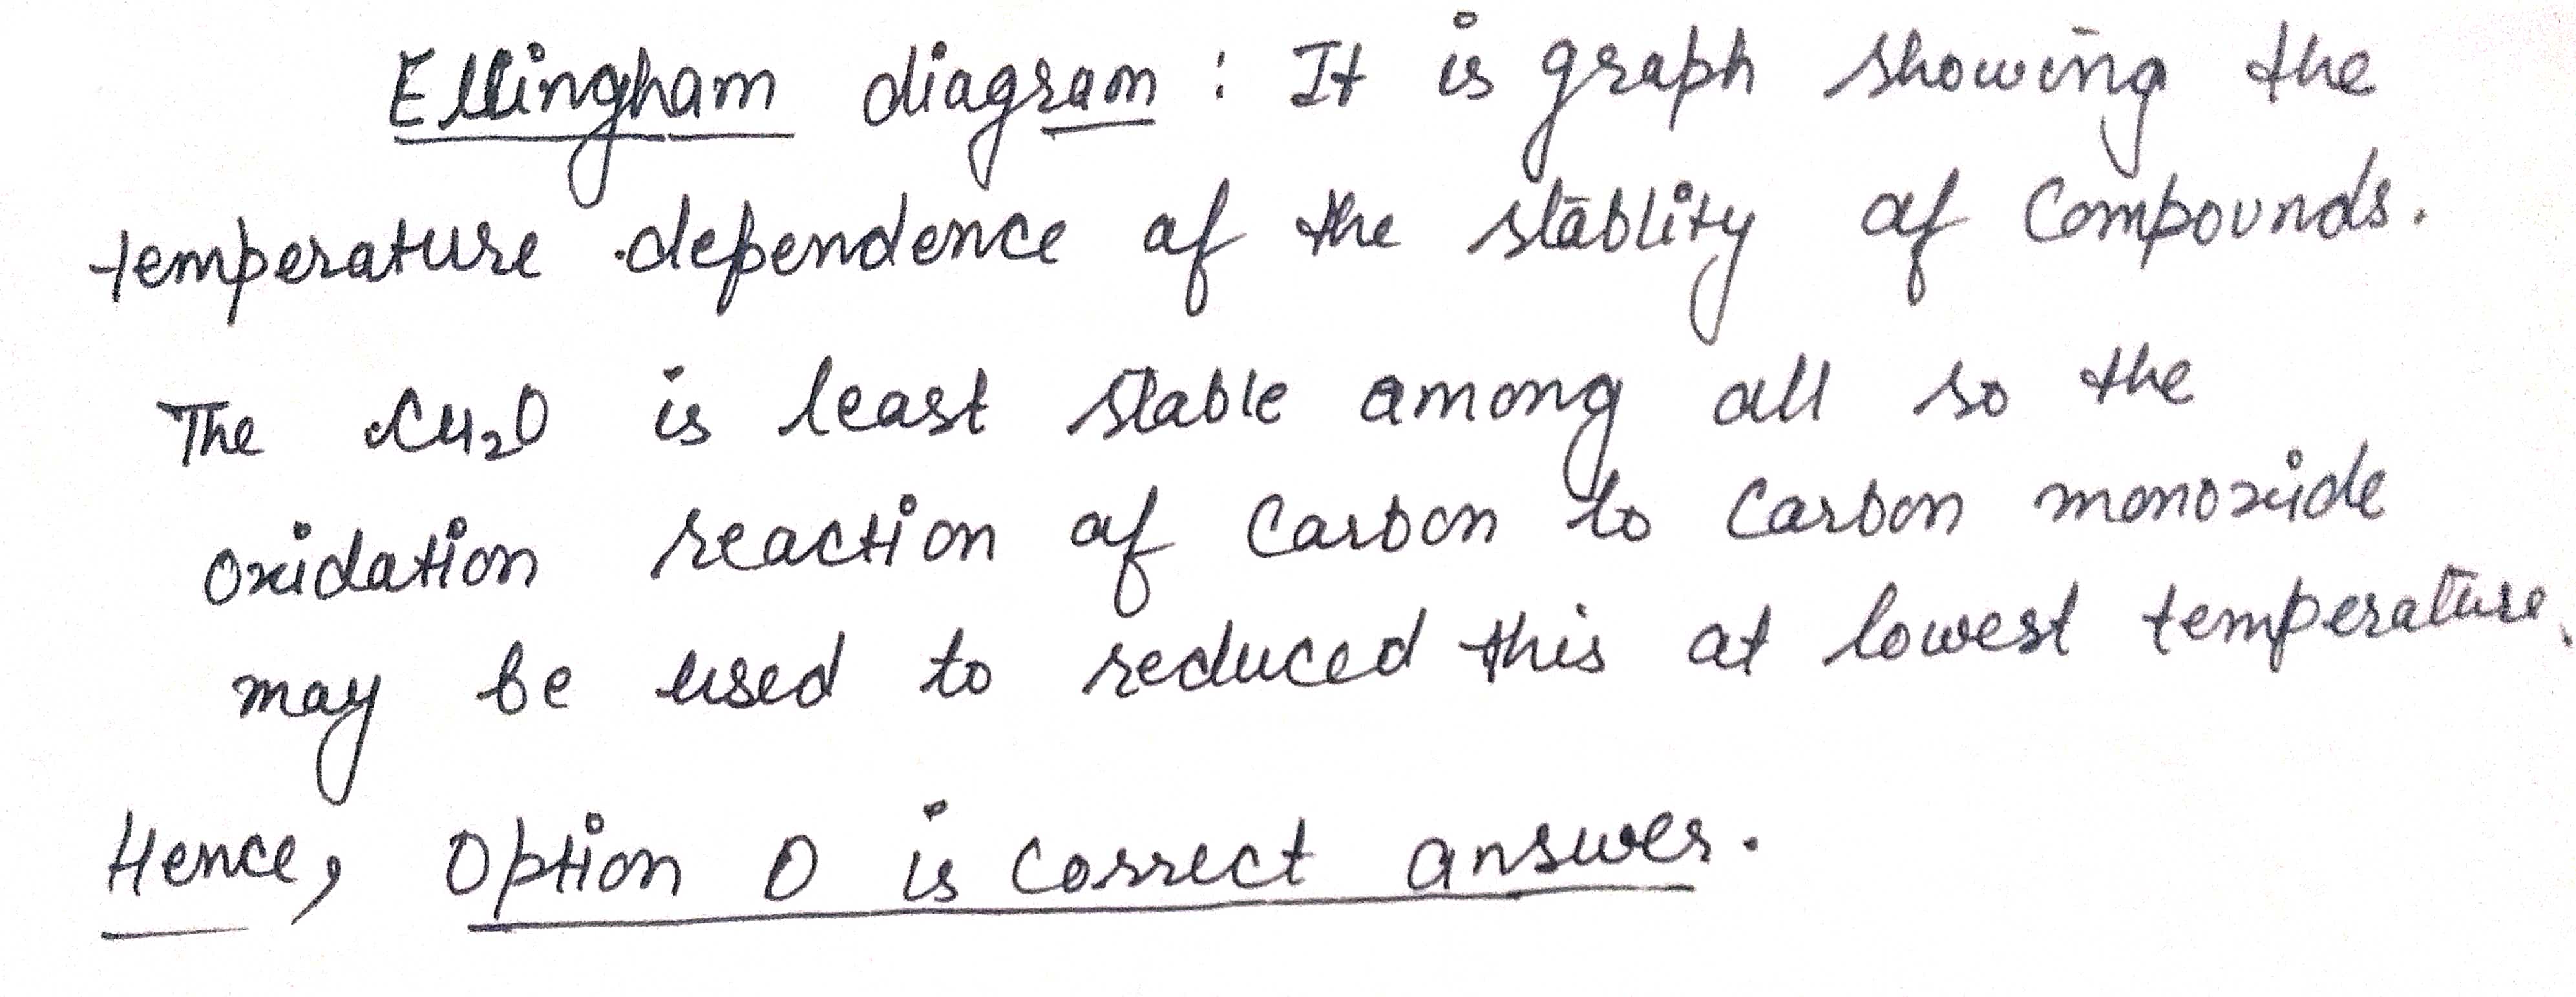 Ellingham diagram : It is graph showing the
temperature dependence of the stablity of Compounds.
The Cu₂O is least stable among all so the
oxidation reaction of Carbon to Carbon monoxide
may be used to reduced this at lowest temperature.
Hence, Option D is Correct answer.